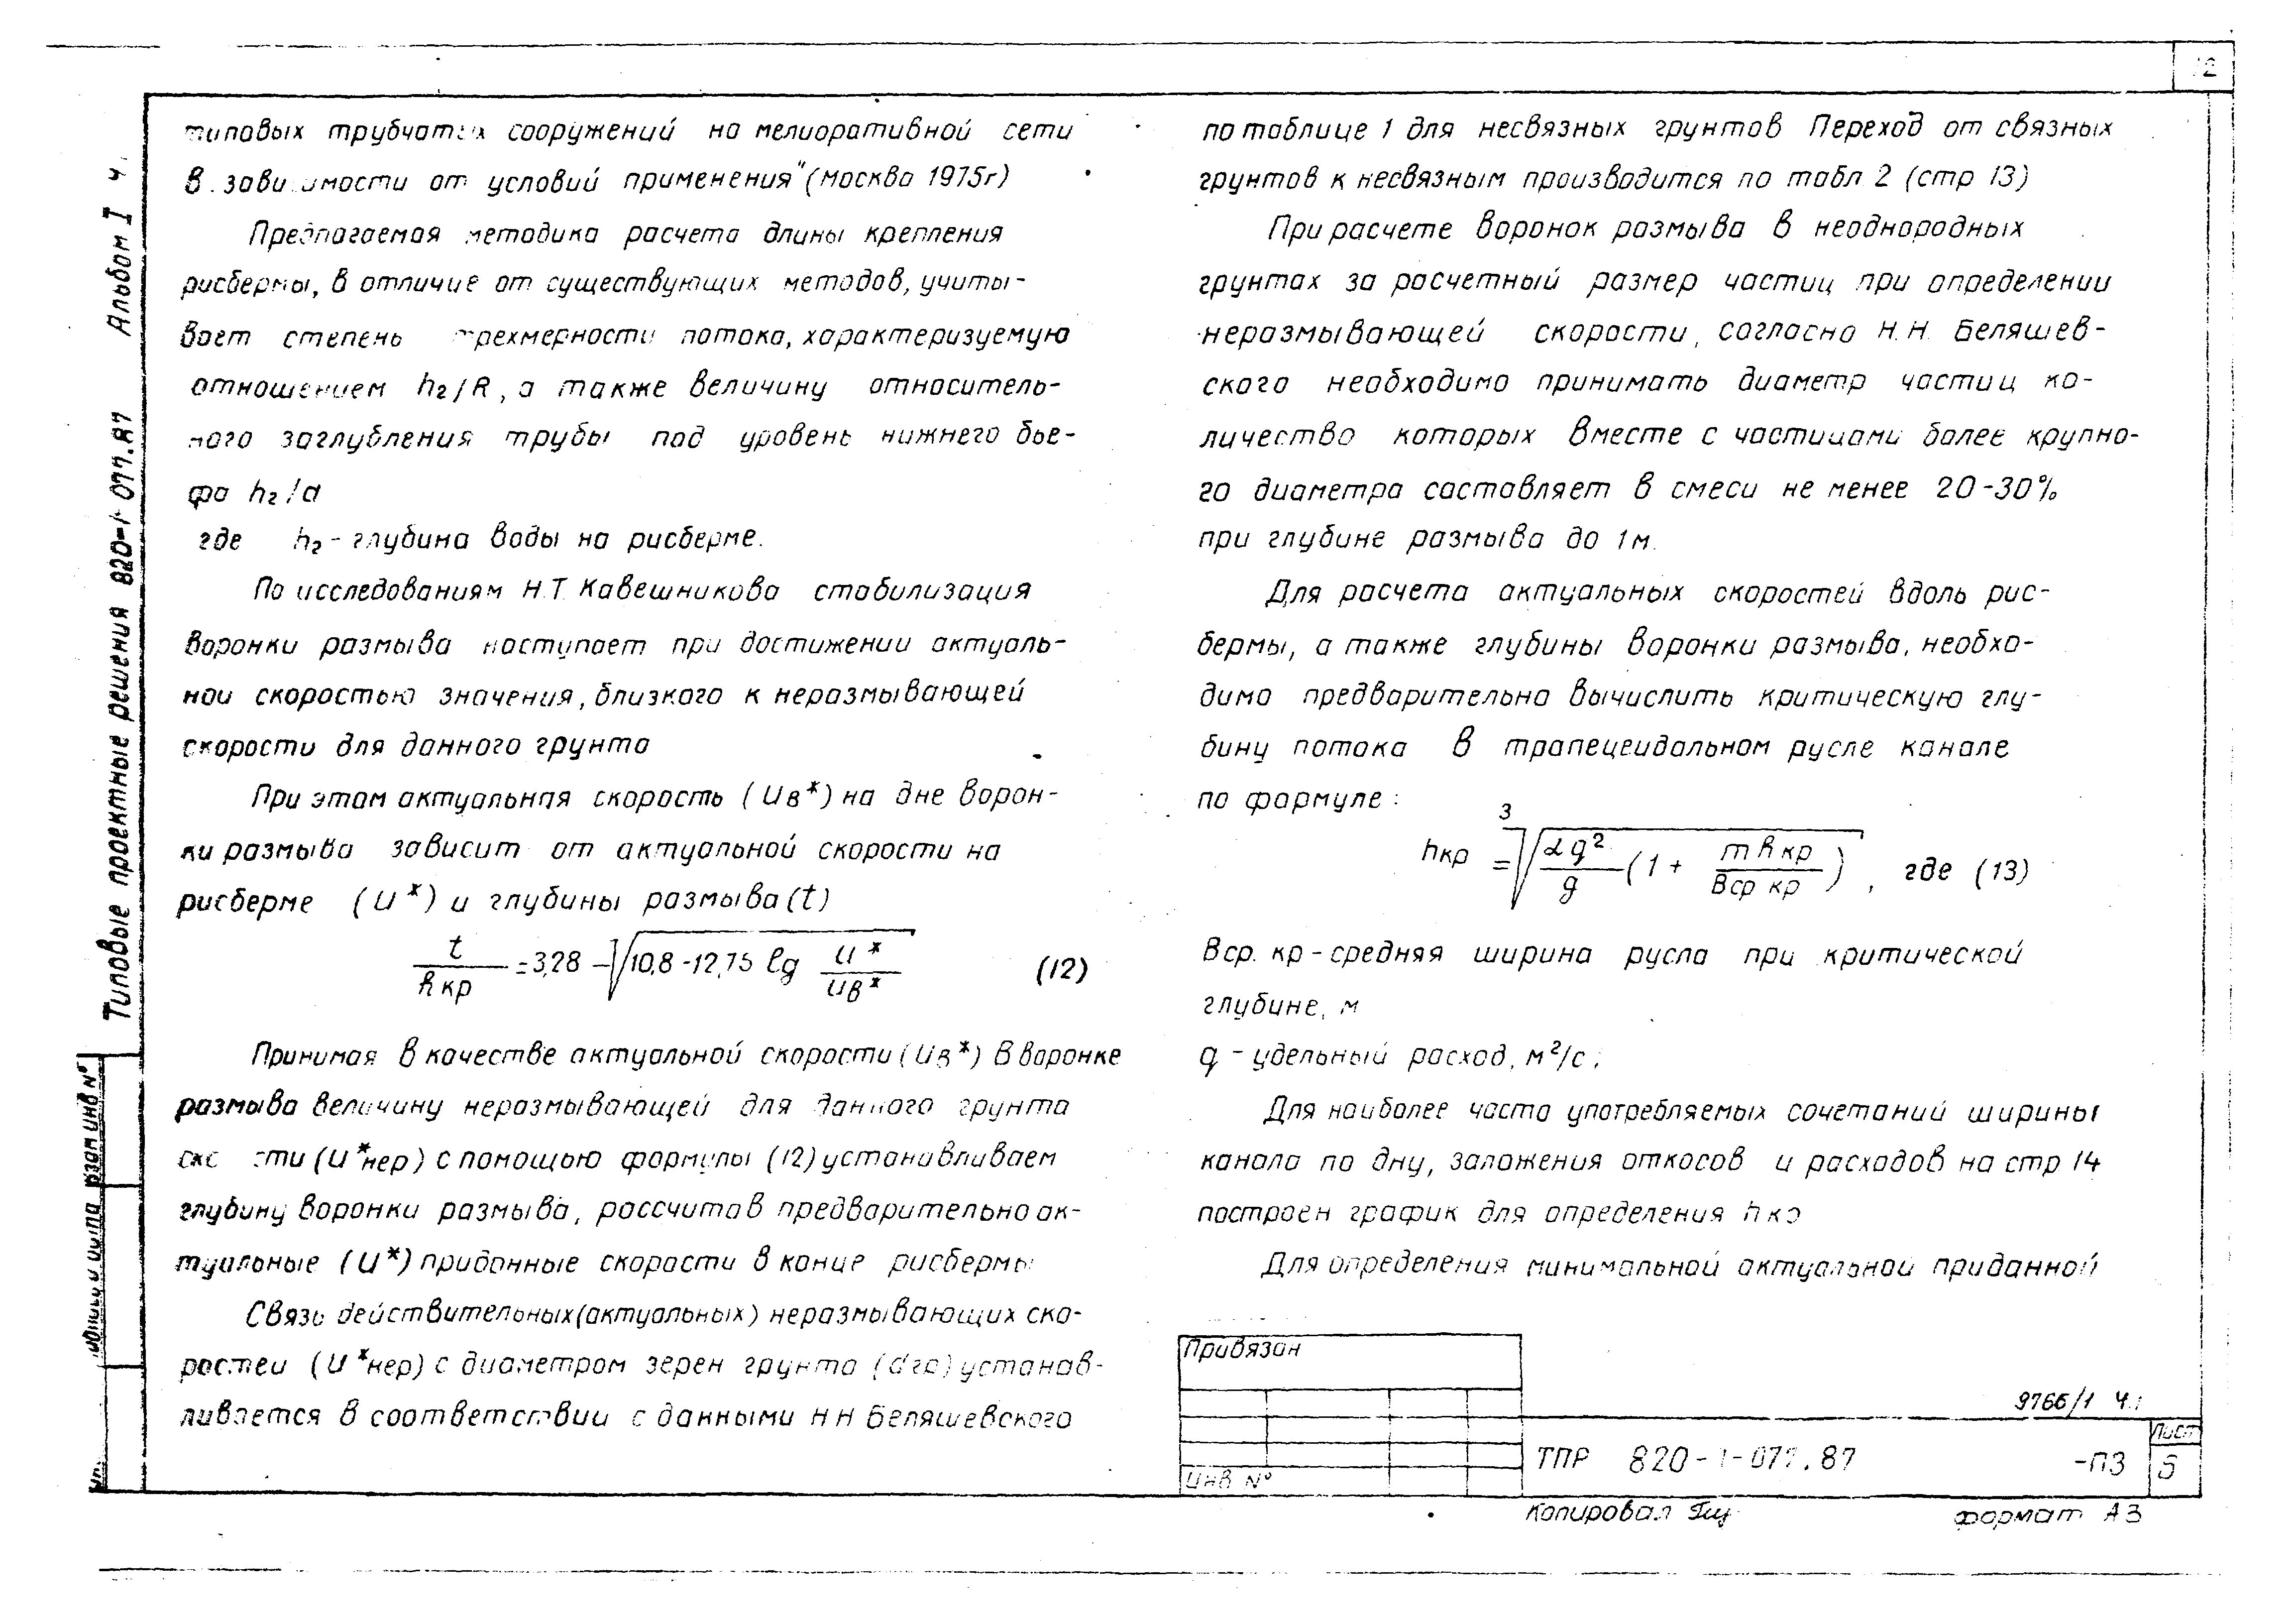 12
типовых трубчатых сооружений на мелиоративной сети
в зависимости от условий применения" (москва 1975г)
Предлагаемая методика расчета длины крепления
рисбермы, в отличие от существующих методов, учиты-
вает степень трехмерности потока, характеризуемую
отношением h₂/R, а также величину относитель-
ного заглубления трубы под уровень нижнего бье-
фа h₂/d
где h₂ - глубина воды на рисберме.
По исследованиям Н.Т. Кавешникова стабилизация
воронки размыва наступает при достижении актуаль-
ной скоростью значения, близкого к неразмывающей
скорости для данного грунта
При этом актуальная скорость (Uв*) на дне ворон-
ки размыва зависит от актуальной скорости на
рисберме (U*) и глубины размыва (t)
t/hкр = 3,28 - √(10,8 - 12,75 lg U*/Uв*) (12)
Принимая в качестве актуальной скорости (Uв*) в воронке
размыва величину неразмывающей для данного грунта
ско сти (U*нер) с помощью формулы (12) устанавливаем
глубину воронки размыва, рассчитав предварительно ак-
туальные (U*) придонные скорости в конце рисбермы
Связь действительных (актуальных) неразмывающих ско-
ростей (U*нер) с диаметром зерен грунта (dгр) устанав-
ливается в соответствии с данными Н Н Беляшевского
по таблице 1 для несвязных грунтов Переход от связных
грунтов к несвязным производится по табл 2 (стр 13)
При расчете воронок размыва в неоднородных
грунтах за расчетный размер частиц при определении
неразмывающей скорости, согласно Н.Н. Беляшев-
ского необходимо принимать диаметр частиц ко-
личество которых вместе с частицами более крупно-
го диаметра составляет в смеси не менее 20-30%
при глубине размыва до 1м.
Для расчета актуальных скоростей вдоль рис-
бермы, а также глубины воронки размыва, необхо-
димо предварительно вычислить критическую глу-
бину потока в трапецеидальном русле канале
по формуле:
hкр = ∛(αq²/g (1 + m hкр/Bср кр)), где (13)
Bср. кр - средняя ширина русла при критической
глубине, м
q - удельный расход, м²/с;
Для наиболее часто употребляемых сочетаний ширины
канала по дну, заложения откосов и расходов на стр 14
построен график для определения hкр
Для определения минимальной актуальной придонной
Типовые проектные решения 820-1-077.87 Альбом I ч.
Взам инв N°
Привязан
Инв N°
9766/1 Ч.1
ТПР 820-1-077.87 -ПЗ
Лист
Копировал
формат А3